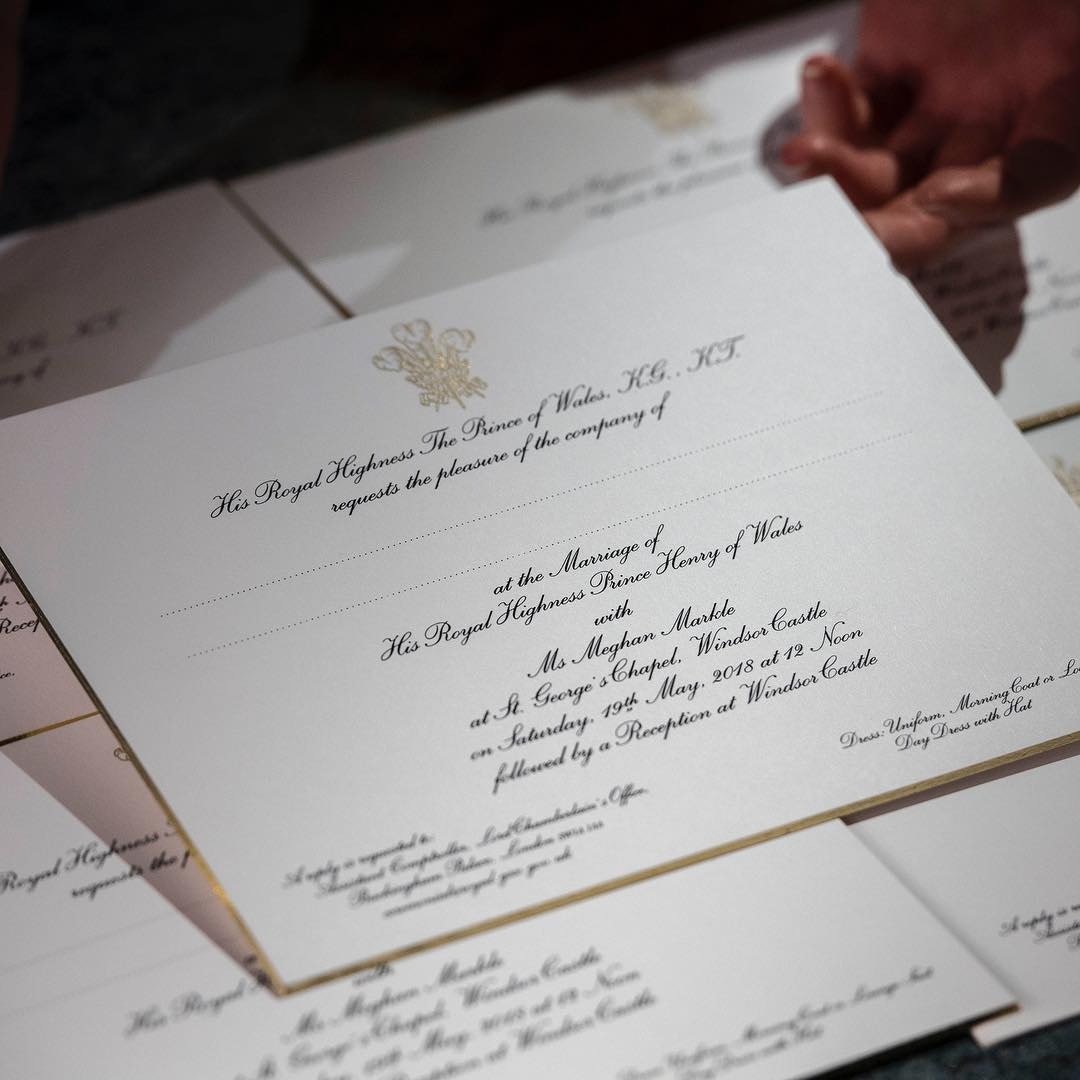 His Royal Highness The Prince of Wales, K.G., K.T.
requests the pleasure of the company of
at the Marriage of
His Royal Highness Prince Henry of Wales
with
Ms Meghan Markle
at St. George's Chapel, Windsor Castle
on Saturday, 19th May, 2018 at 12 Noon
followed by a Reception at Windsor Castle
Dress: Uniform, Morning Coat or
Day Dress with Hat
A reply is requested to:
Assistant Comptroller, Lord Chamberlain's Office,
Buckingham Palace, London
K.G., K.T.
requests the
Royal Highness
requests the
His Royal
with
Ms Meghan Markle
George's Chapel, Windsor Castle
May, 2018 at 12 Noon
Reception at Windsor Castle
Dress: Uniform, Morning Coat or Lounge Suit
Day Dress with Hat
A reply is